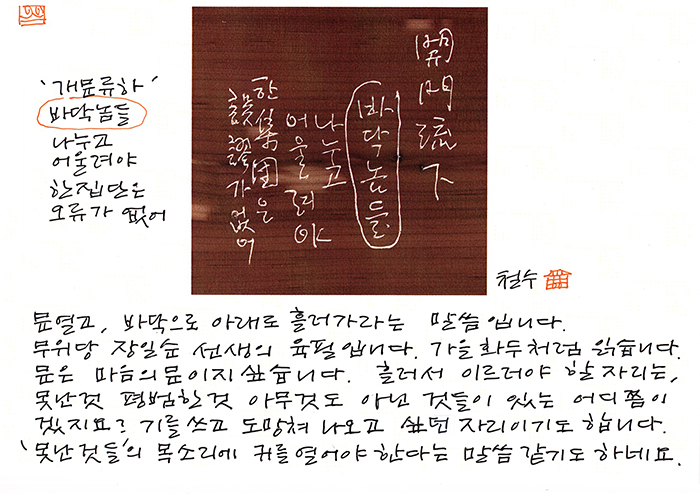 '개문류하'
바닥놈들
나누고
어울려야
한집단은
오류가 없어
開門流下
바닥놈들
나누고
어울려야
한集団은
誤謬가없어
철수
문열고, 바닥으로 아래로 흘러가라는 말씀입니다.
무위당 장일순 선생의 육필입니다. 가을화두처럼 읽습니다.
문은 마음의 문이지 싶습니다. 흘러서 이르러야 할 자리는,
못난것 평범한것 아무것도 아닌 것들이 있는 어디쯤이
겠지요? 기를 쓰고 도망쳐 나오고 싶던 자리이기도 합니다.
'못난것들'의 목소리에 귀를 열어야 한다는 말씀 같기도 하네요.